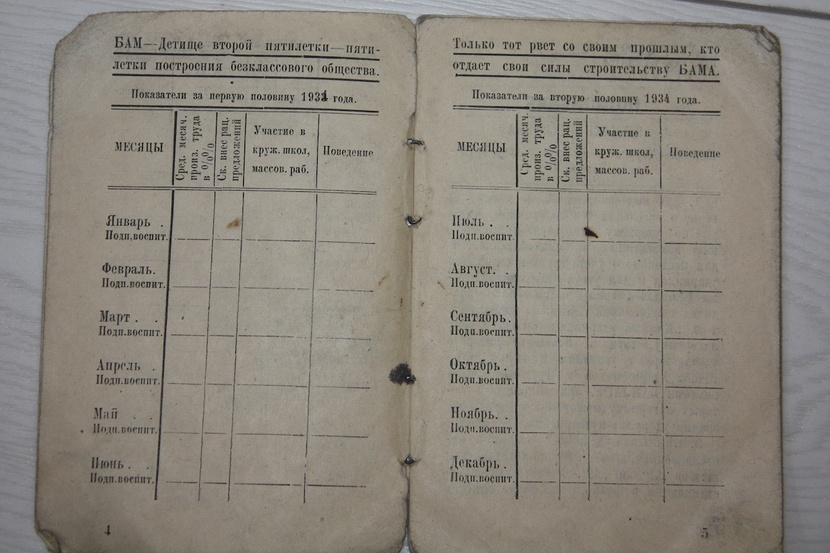 БАМ—Детище второй пятилетки—пяти-
летки построения безклассового общества.
Показатели за первую половину 1934 года.
МЕСЯЦЫ
Сред. месяч.
произ. труда
в %%
Ск. внес рац.
предложений
Участие в
круж. школ,
массов. раб.
Поведение
Январь .
Подп.воспит.
Февраль.
Подп.воспит.
Март .
Подп.воспит.
Апрель .
Подп.воспит.
Май . .
Подп.воспит.
Июнь . .
Подп.воспит.
4
Только тот рвет со своим прошлым, кто
отдает свои силы строительству БАМА.
Показатели за вторую половину 1934 года.
МЕСЯЦЫ
Сред. месяч.
произ. труда
в %%
Ск. внес рац.
предложений
Участие в
круж. школ,
массов. раб.
Поведение
Июль . .
Подп.воспит.
Август. .
Подп.воспит.
Сентябрь.
Подп.воспит.
Октябрь .
Подп.воспит.
Ноябрь. .
Подп.воспит.
Декабрь .
Подп.воспит.
5